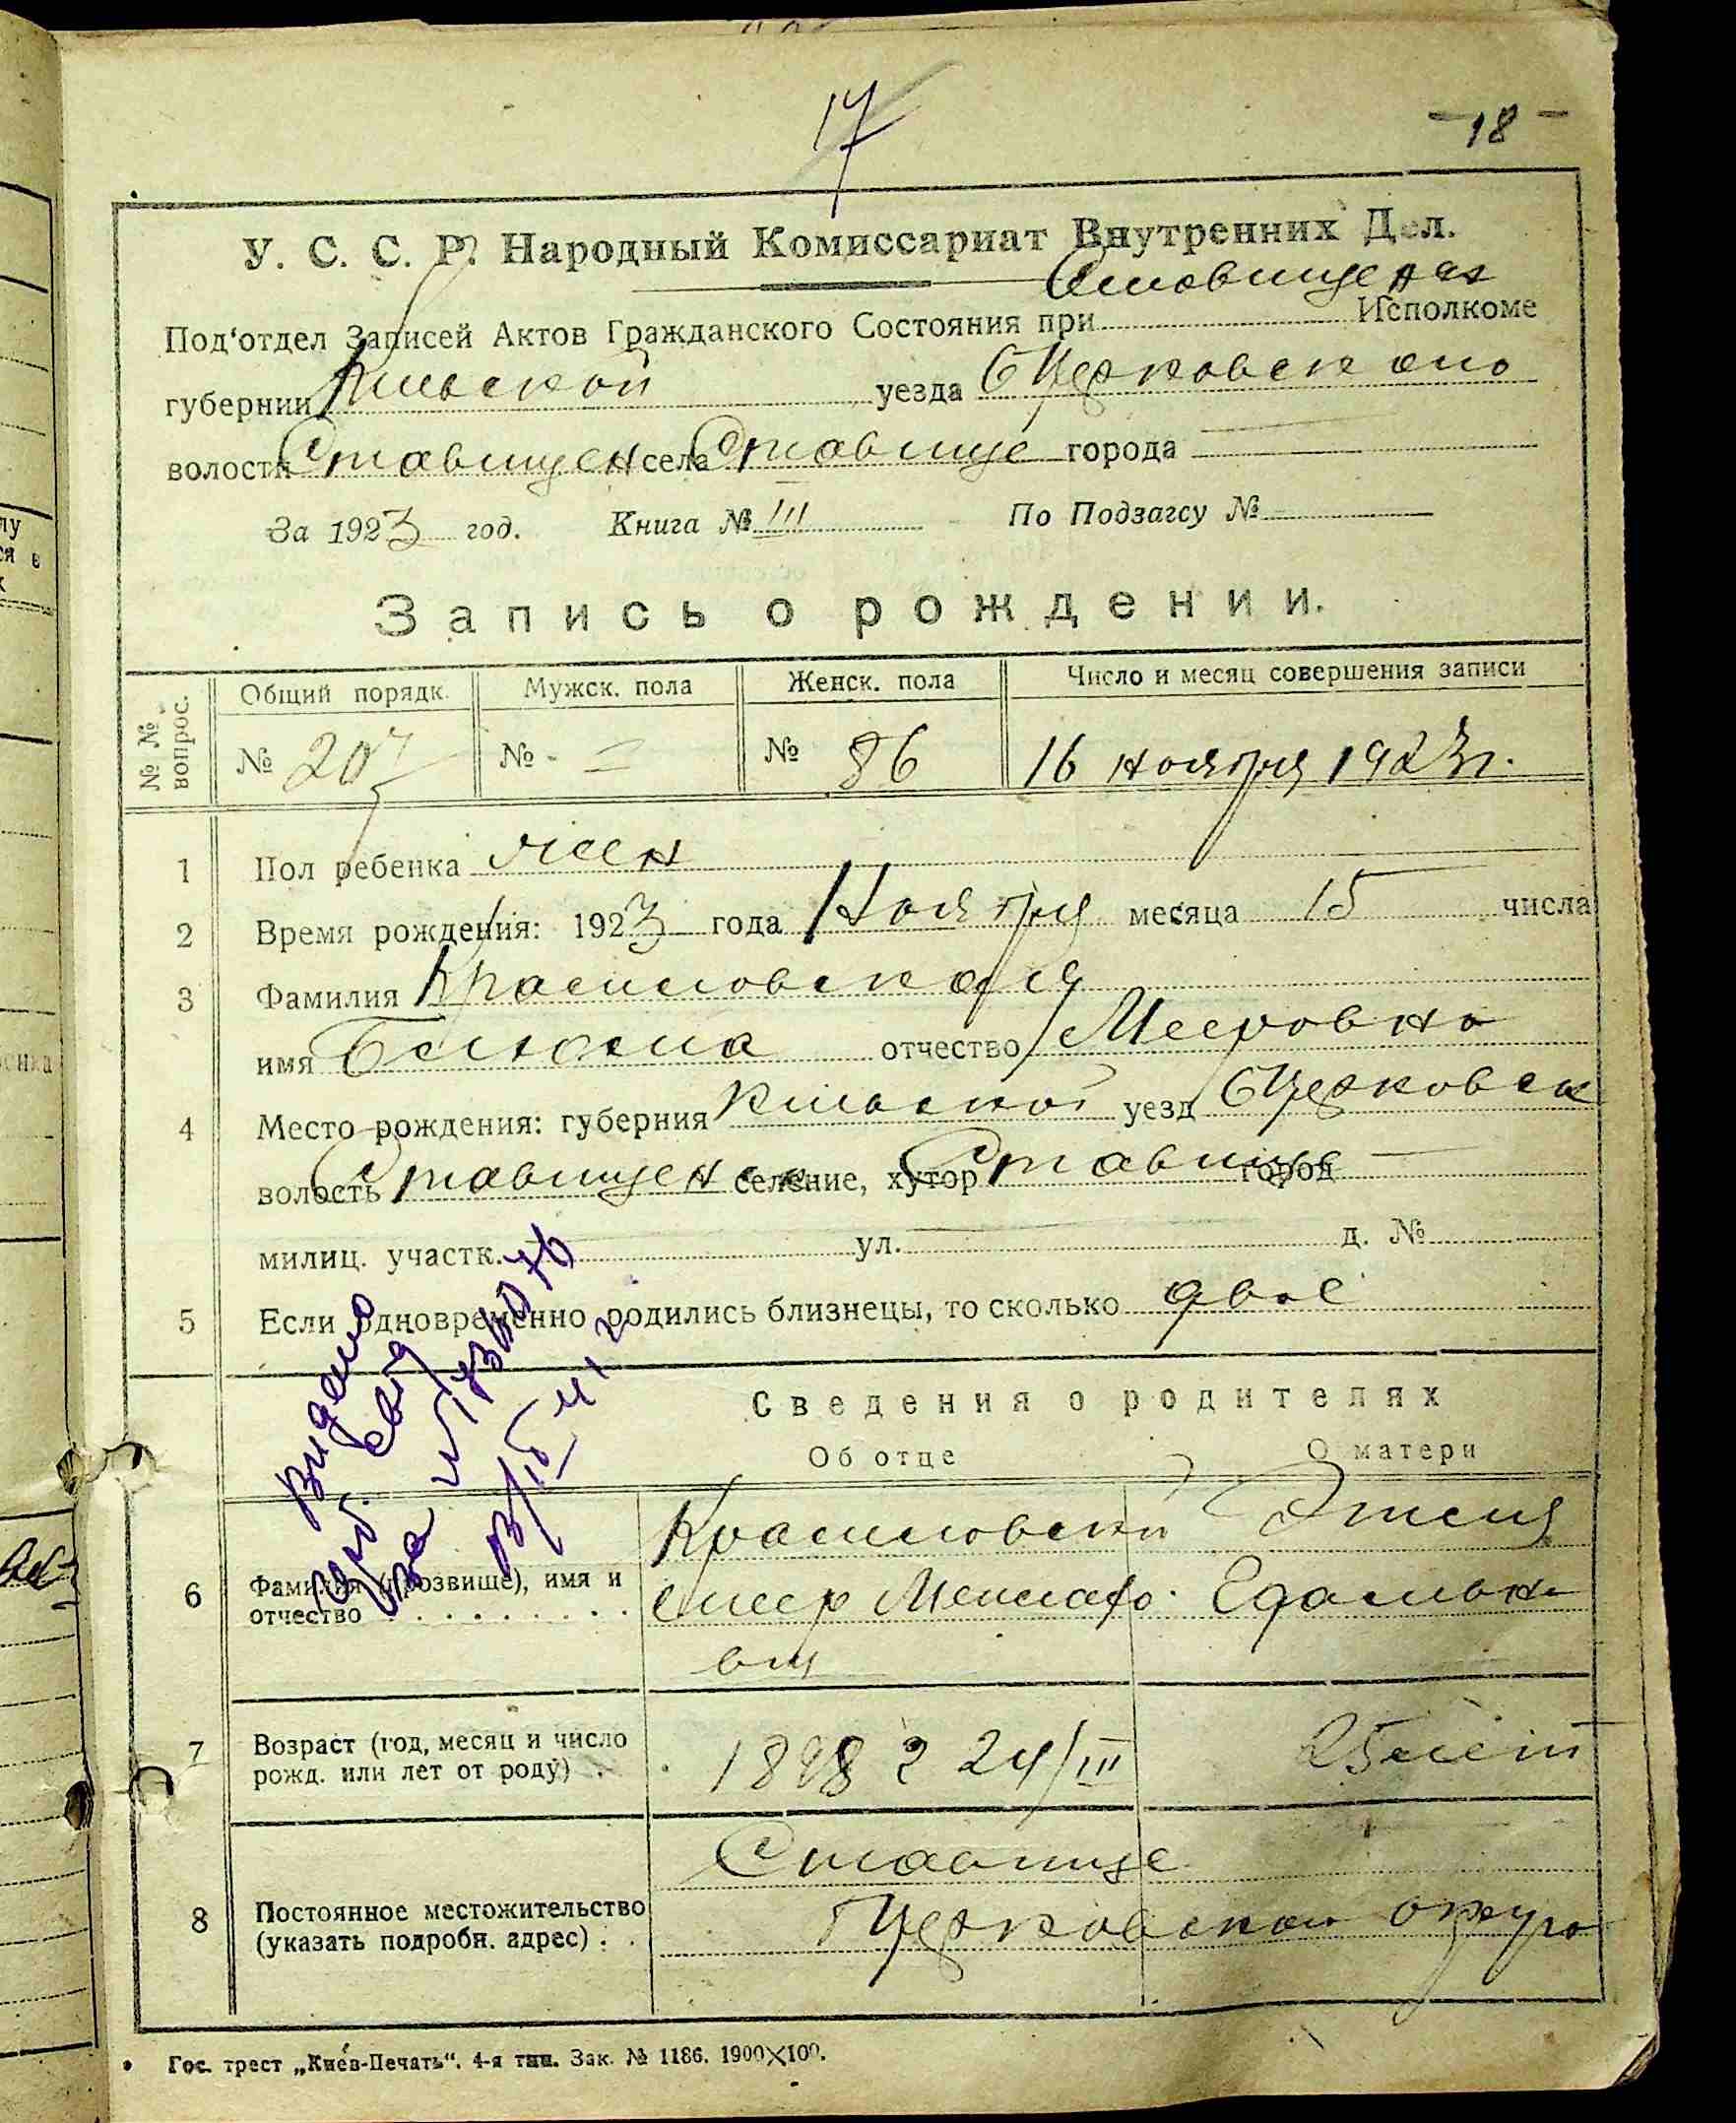 17
-18-
У. С. С. Р. Народный Комиссариат Внутренних Дел.
Под'отдел Записей Актов Гражданского Состояния при Ставищенск Исполкоме
губернии Киевской уезда БЦерковского
волости Ставищен села Ставище города —
За 1923 год. Книга № III По Подзагсу № —
Запись о рождении.
№ № вопрос. Общий порядк. Мужск. пола Женск. пола Число и месяц совершения записи
№ 207 № - № 86 16 ноября 1923 г.
1 Пол ребенка жен
2 Время рождения: 1923 года Ноября месяца 15 числа
3 Фамилия Красиловская
имя отчество Мееровна
4 Место рождения: губерния Киевской уезд БЦерковск
волость Ставищенск селение, хутор Ставище город —
милиц. участк. ул. д. №
5 Если одновременно родились близнецы, то сколько двое
Сведения о родителях
Об отце О матери
6 Фамилия (прозвище), имя и отчество
Красиловский Этель
Меер
вич
7 Возраст (год, месяц и число рожд. или лет от роду) 1898 г 24/III 25 лет
8 Постоянное местожительство (указать подробн. адрес)
Ставище
БЦерковской округа
Видано
Свід
за
Гос. трест „Киев-Печать“. 4-я тип. Зак. № 1186. 1900×100.